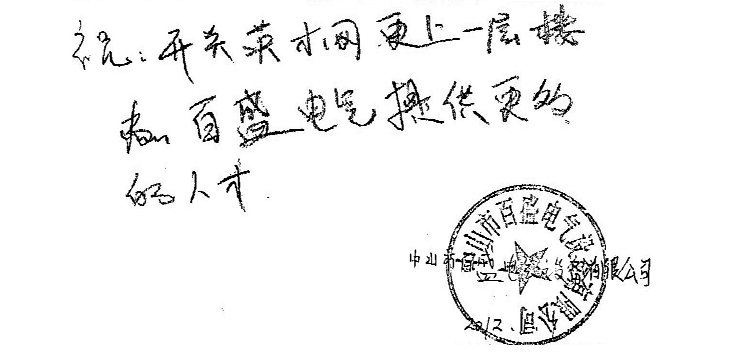 祝：开关英才网更上一层楼
为百盛电气提供更多
的人才
中山市百盛电气设备有限公司
中山市百盛电气设备有限公司
2012.